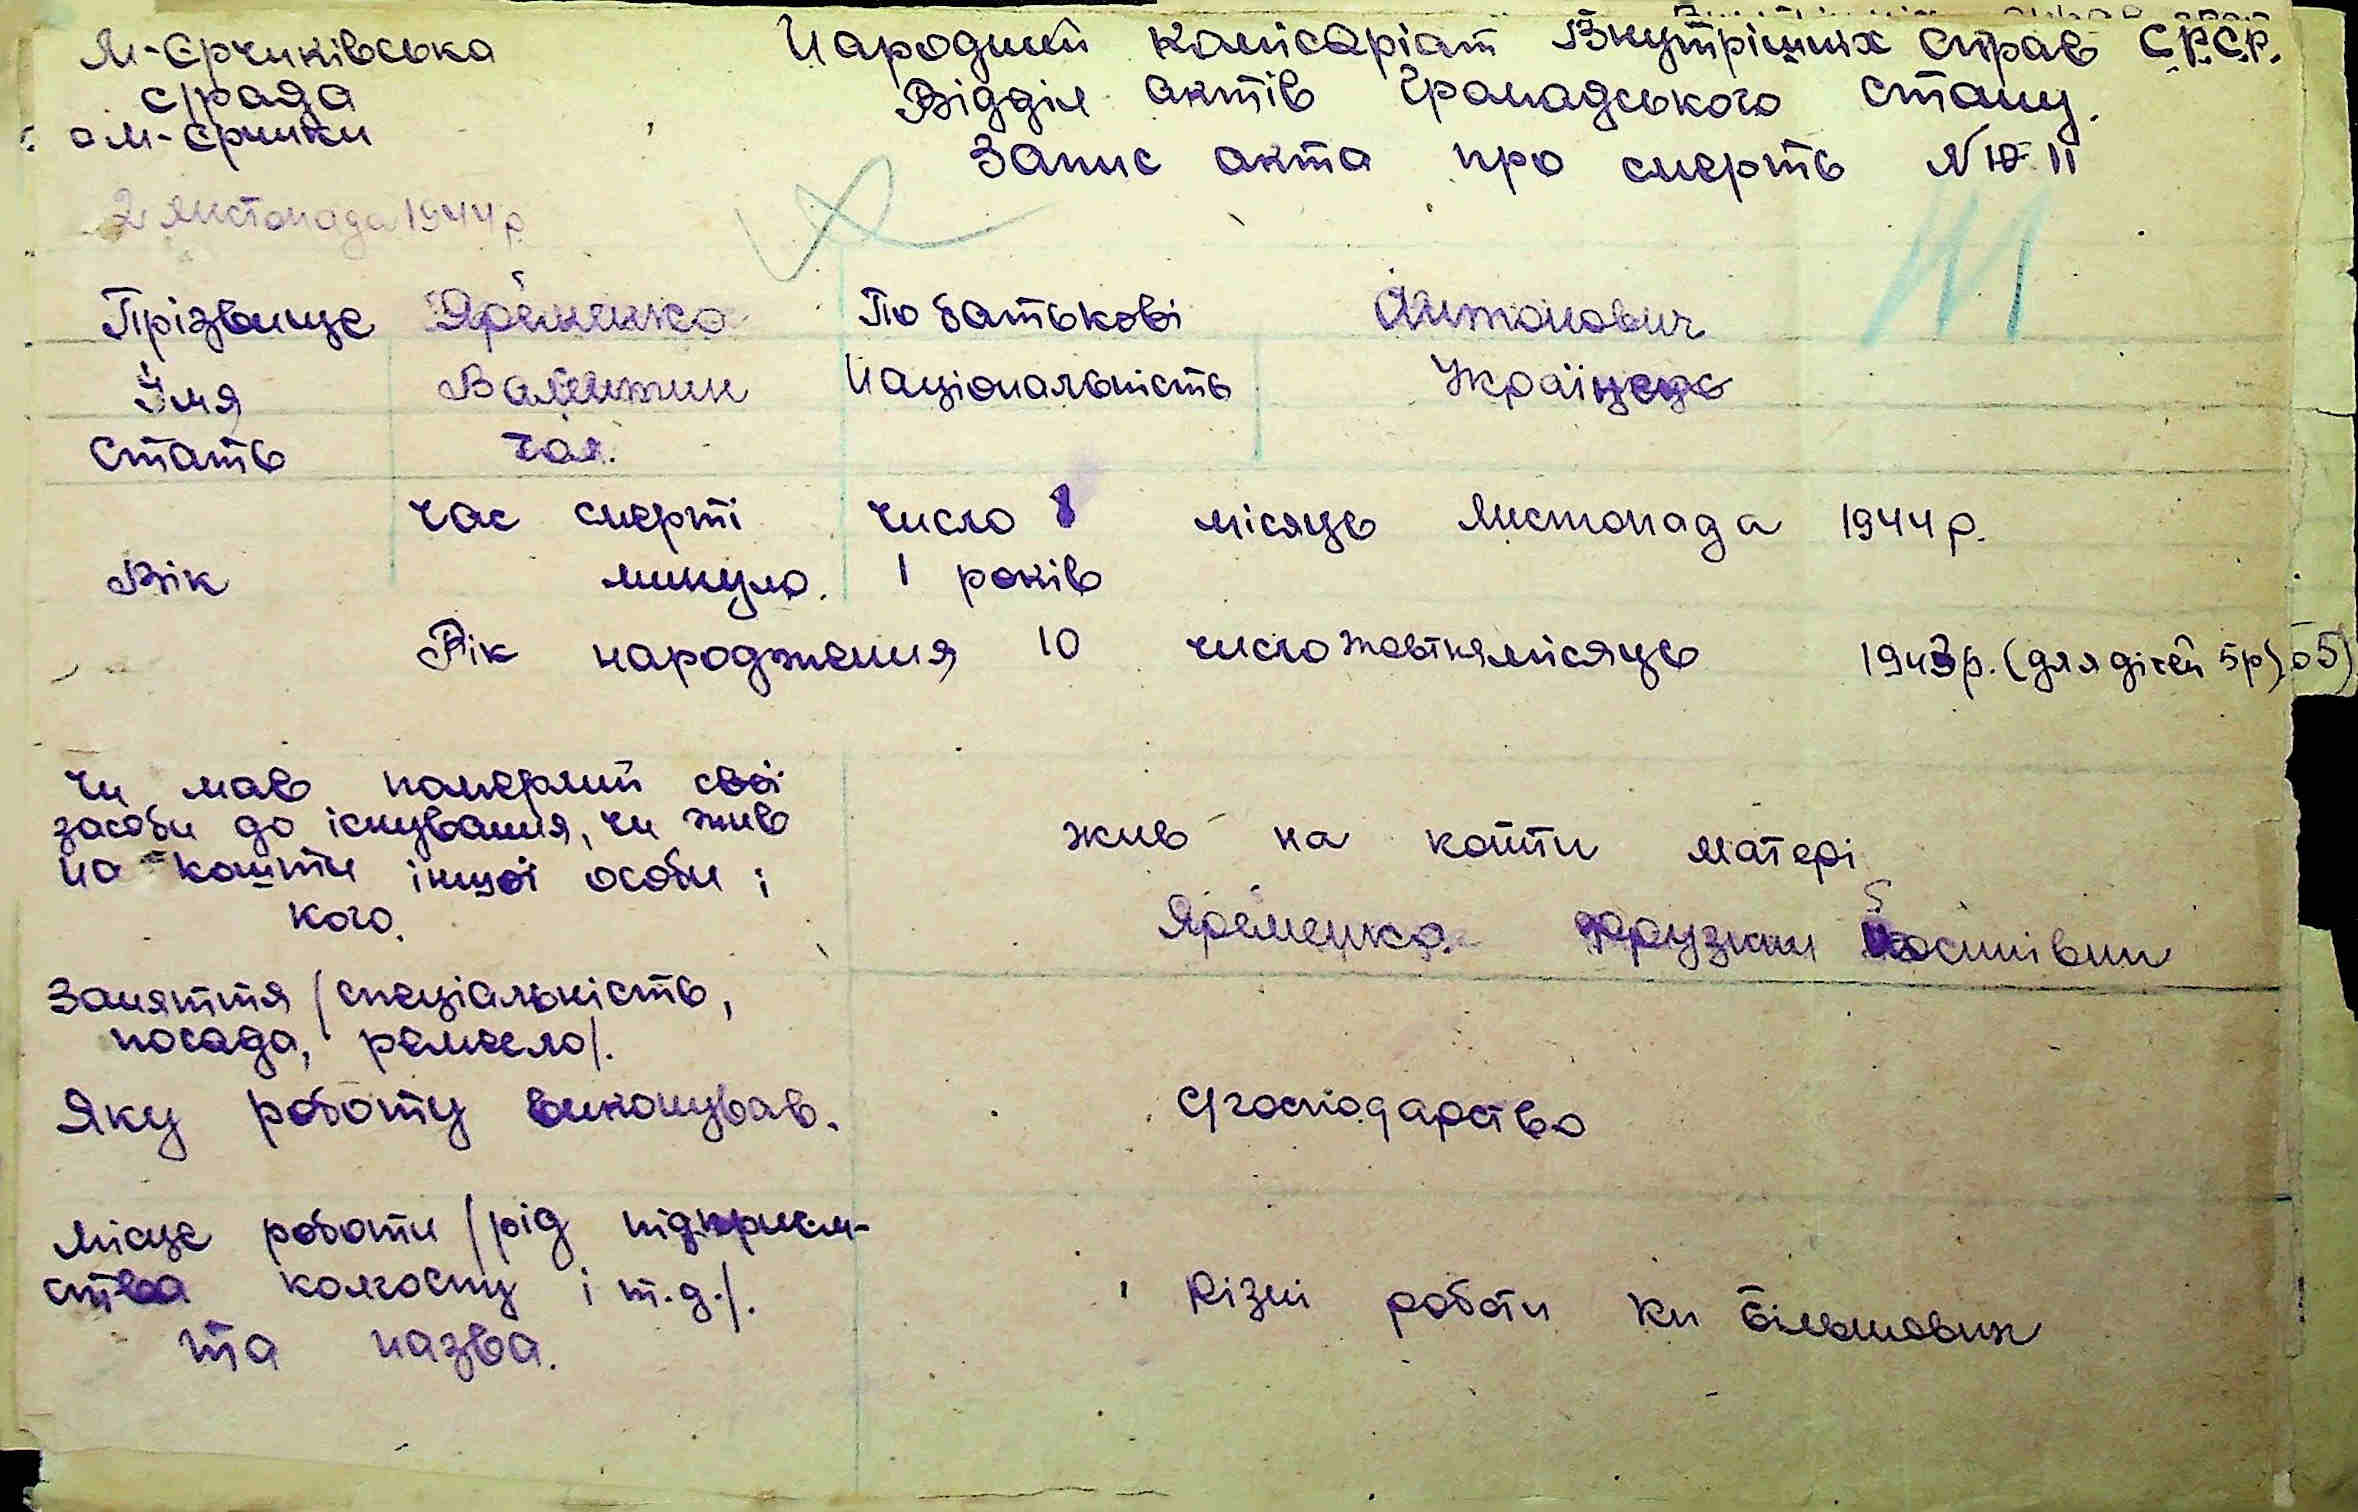 М-Єрчиківська
с/рада
с М-Єрчики
Народний комісаріат Внутрішніх справ С.Р.С.Р.
Відділ актів Громадського стану.
Запис акта про смерть № 11
2 листопада 1944 р
11
Прізвище Яременко По батькові Антонович
Імя Валентин Національність Українець
Стать чол.
час смерті число 1 місяць листопада 1944 р.
Вік минуло. 1 років
Рік народження 10 число жовтня місяць 1943 р. (для дітей 5 р) о 5)
Чи мав померлий свої
засоби до існування, чи жив
на кошти іншої особи і
кого.
жив на кошти матері
Яременко Фрузини Йосипівни
Заняття /спеціальність,
посада, ремесло/.
Яку роботу виконував.
с/господарство
Місце роботи /рід підприєм-
ства колгоспу і т.д./.
та назва.
Різні роботи к-п Більшовик